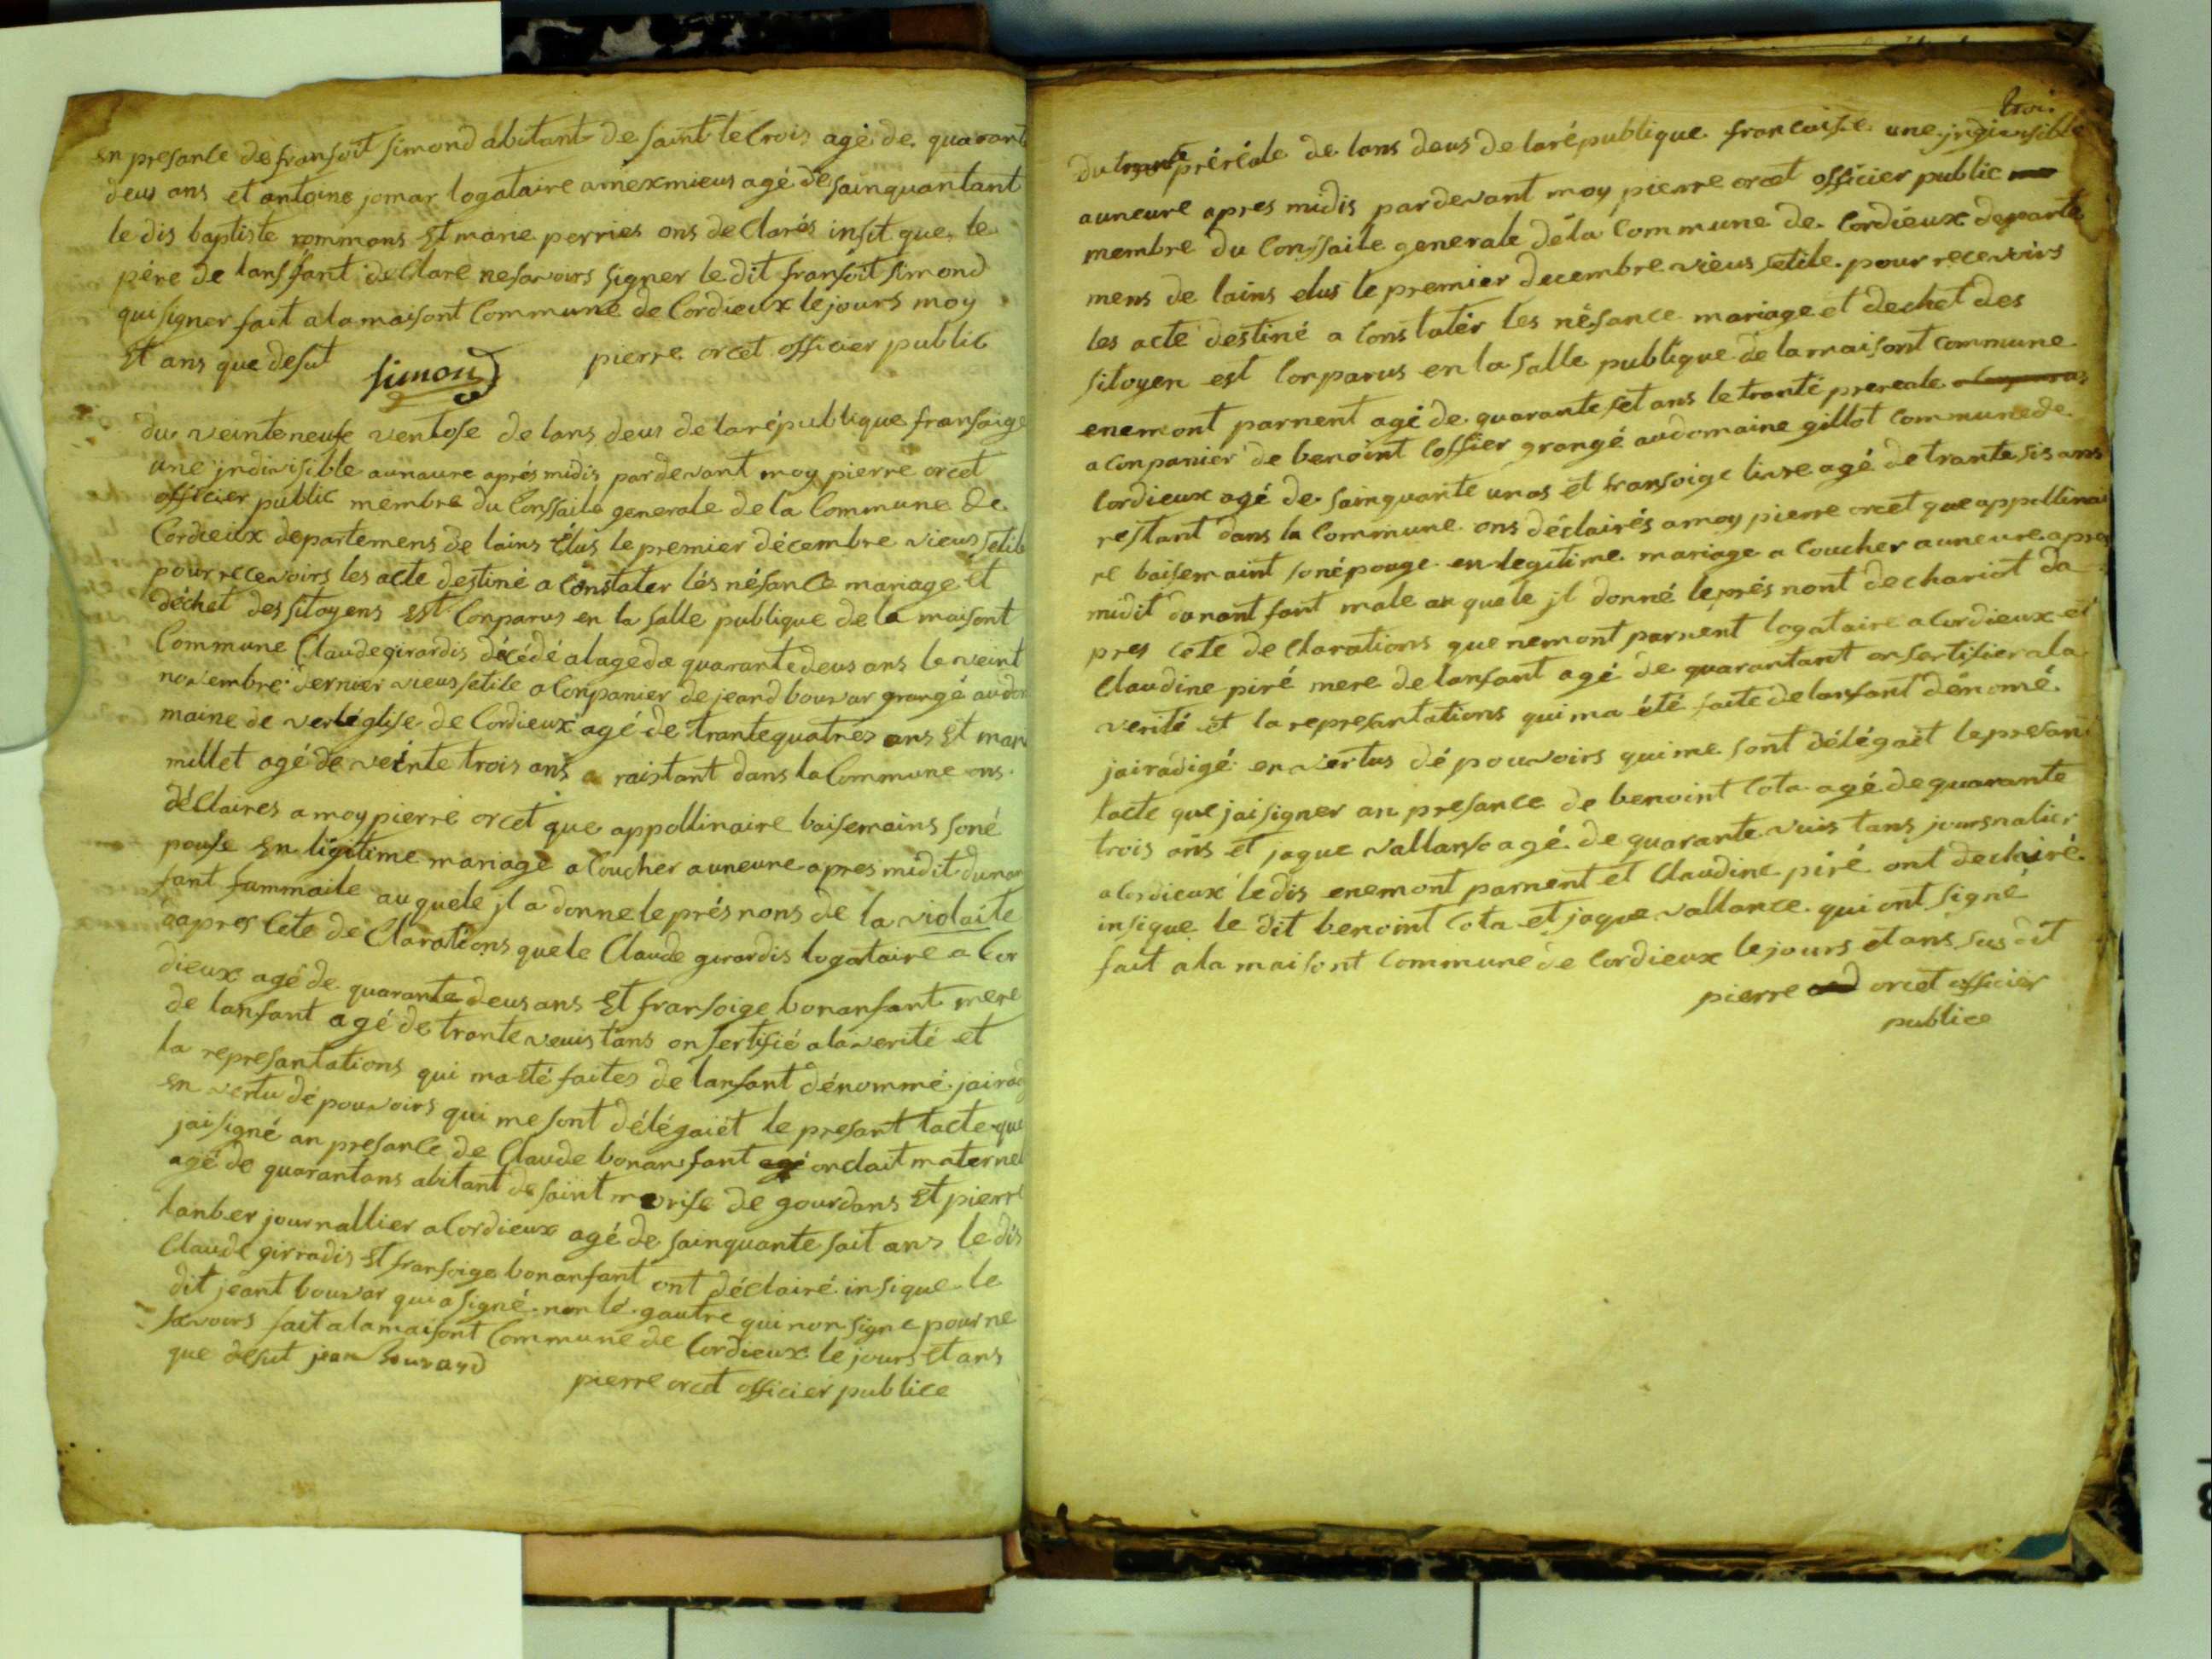 en presance de fransoit simond abitant de saint te Crois agé de quarante
deus ans et antoine jomar logataire a mexmieus agé de sainquantant
le dis baptiste rommans et marie perries ons de Clarés insit que le
pére de lansfant de Clare ne savoirs signer le dit fransoit simond
qui signer fait a la maisont Commune de Cordieux le jours moy
et ans que desut simond pierre orcet officier public
du veinte neufe ventose de lans deus de la république fransaige
une jndivisible aunaure aprés midis par devant moy pierre orcet
officier public membre du Conssaile generale de la Commune de
Cordieux departemens de lains élus le premier décembre vieus setile
pour recevoirs les acte destiné a Constater lés nésance mariage et
déchet des sitoyens est Conparus en la salle publique de la maisont
Commune Claude girardis décédé a lage de quarante deus ans le veint
novembre dernier vieus setile a Conpanier de jeand bouvar grangé au do
maine de verléglise de Cordieux agé de trante quatres ans et mar
millet agé de veinte trois ans a raistant dans la Commune ons
déClaires a moy pierre orcet que appollinaire baisemains soné
pouse en ligitime mariage a Coucher auneure apres midit dunan
fant fammaile au quele jl a donne le présnons de la violaite
dapres Cete de Clarations que le Claude girardis logataire a Cor
dieux agé de quarante deus ans et fransoige bonanfant mere
de lanfant agé de trante veuis tans on sertifié a la verité et
la represantations qui ma été faites de lanfant dénommé jairadg
en vertu dé pouvoirs qui me sont délégaiét le presant tacte que
jai signé an presance de Claude bonansfant agé onclait maternel
agé de quarantans abitant de saint morise de gourdans et pierre
lanber journallier a Cordieux agé de sainquante sait ans le dis
Claude girradis et fransoige bonanfant ont déClairé insique le
dit jeant bouvar qui a signé non lé gautre qui non signe pour ne
savoirs fait a la maisont Commune de Cordieux le jours et ans
que desut jean bouvard
pierre orcet officier publice
troi
du trante préréale de lans deus de la république francaise une jndivisible
auneure apres midis par devant moy pierre orcet officier public
membre du Conssaile generale de la Commune de Cordieux departe
mens de lains elus le premier decembre vieus setile pour recevoirs
les acte destiné a Constatér les nésance mariage et dechet des
sitoyen est Conparus en la salle publique de la maisont commune
enemont parnent agé de quarante set ans le trante prereale
a Conpanier de benoint Coffier grangé au domaine gillot Commune de
Cordieux agé de sainquante unas et fransoige livre agé de trante sis ans
restant dans la Commune ons déclairés a moy pierre orcet que appollinai
re baisemaint sonépouge en legitime mariage a Coucher auneure apres
midit dunant fant male au quele jl donné le prés nont de chariot da
pres Cete de Clarations que nemont parnent logataire a Cordieux et
Claudine piré mere de lanfant agé de quarantant on sertifier a la
verité et la represantations qui ma été faite de lanfant dénomé
jairadigé en vertus dé pouvoirs qui me sont délégait le presant
tacte que jai signer an presance de benoint Cota agé de quarante
trois ans et jaque vallanse agé de quarante vuis tans journalier
a Cordieux le dis enemont parnent et Claudine piré ont declairé
insique le dit benoint Cota et jaque vallance qui ont signé
fait a la maisont Commune de Cordieux le jours et ans sus dit
pierre orcet officier
publice